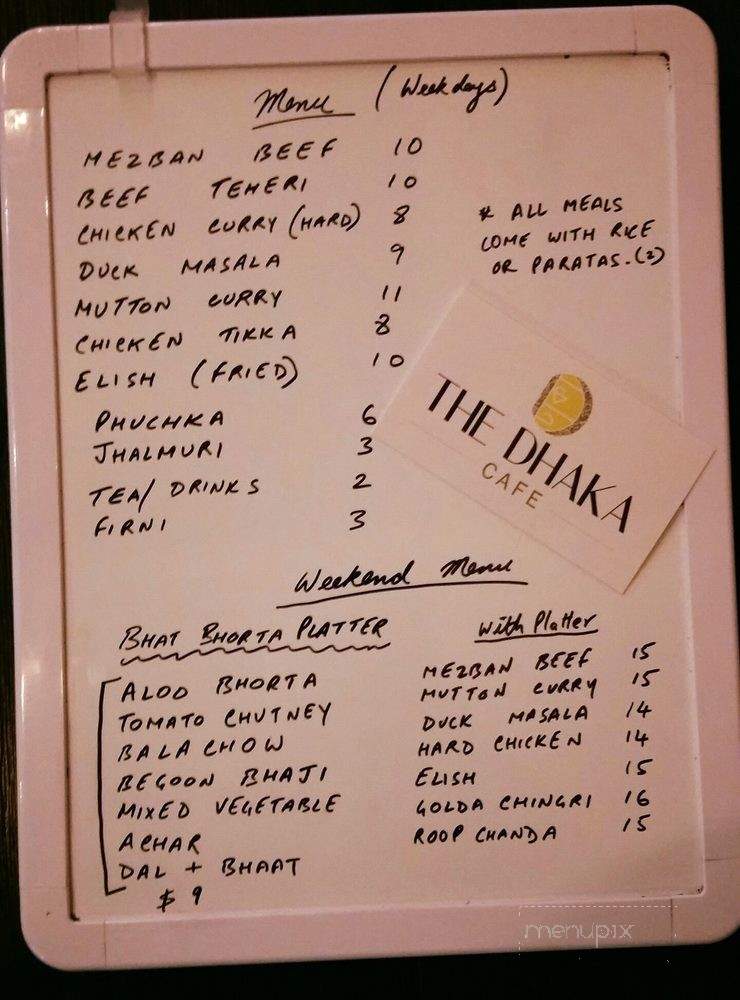 Menu (Weekdays)
MEZBAN BEEF 10
BEEF TEHERI 10
CHICKEN CURRY (HARD) 8
DUCK MASALA 9
MUTTON CURRY 11
CHICKEN TIKKA 8
ELISH (FRIED) 10
PHUCHKA 6
JHALMURI 3
TEA/ DRINKS 2
FIRNI 3
* ALL MEALS
COME WITH RICE
OR PARATAS. (2)
THE DHAKA
CAFE
Weekend Menu
BHAT BHORTA PLATTER
ALOO BHORTA
TOMATO CHUTNEY
BALACHOW
BEGOON BHAJI
MIXED VEGETABLE
ACHAR
DAL + BHAAT
$ 9
With Platter
MEZBAN BEEF 15
MUTTON CURRY 15
DUCK MASALA 14
HARD CHICKEN 14
ELISH 15
GOLDA CHINGRI 16
ROOP CHANDA 15
menupix